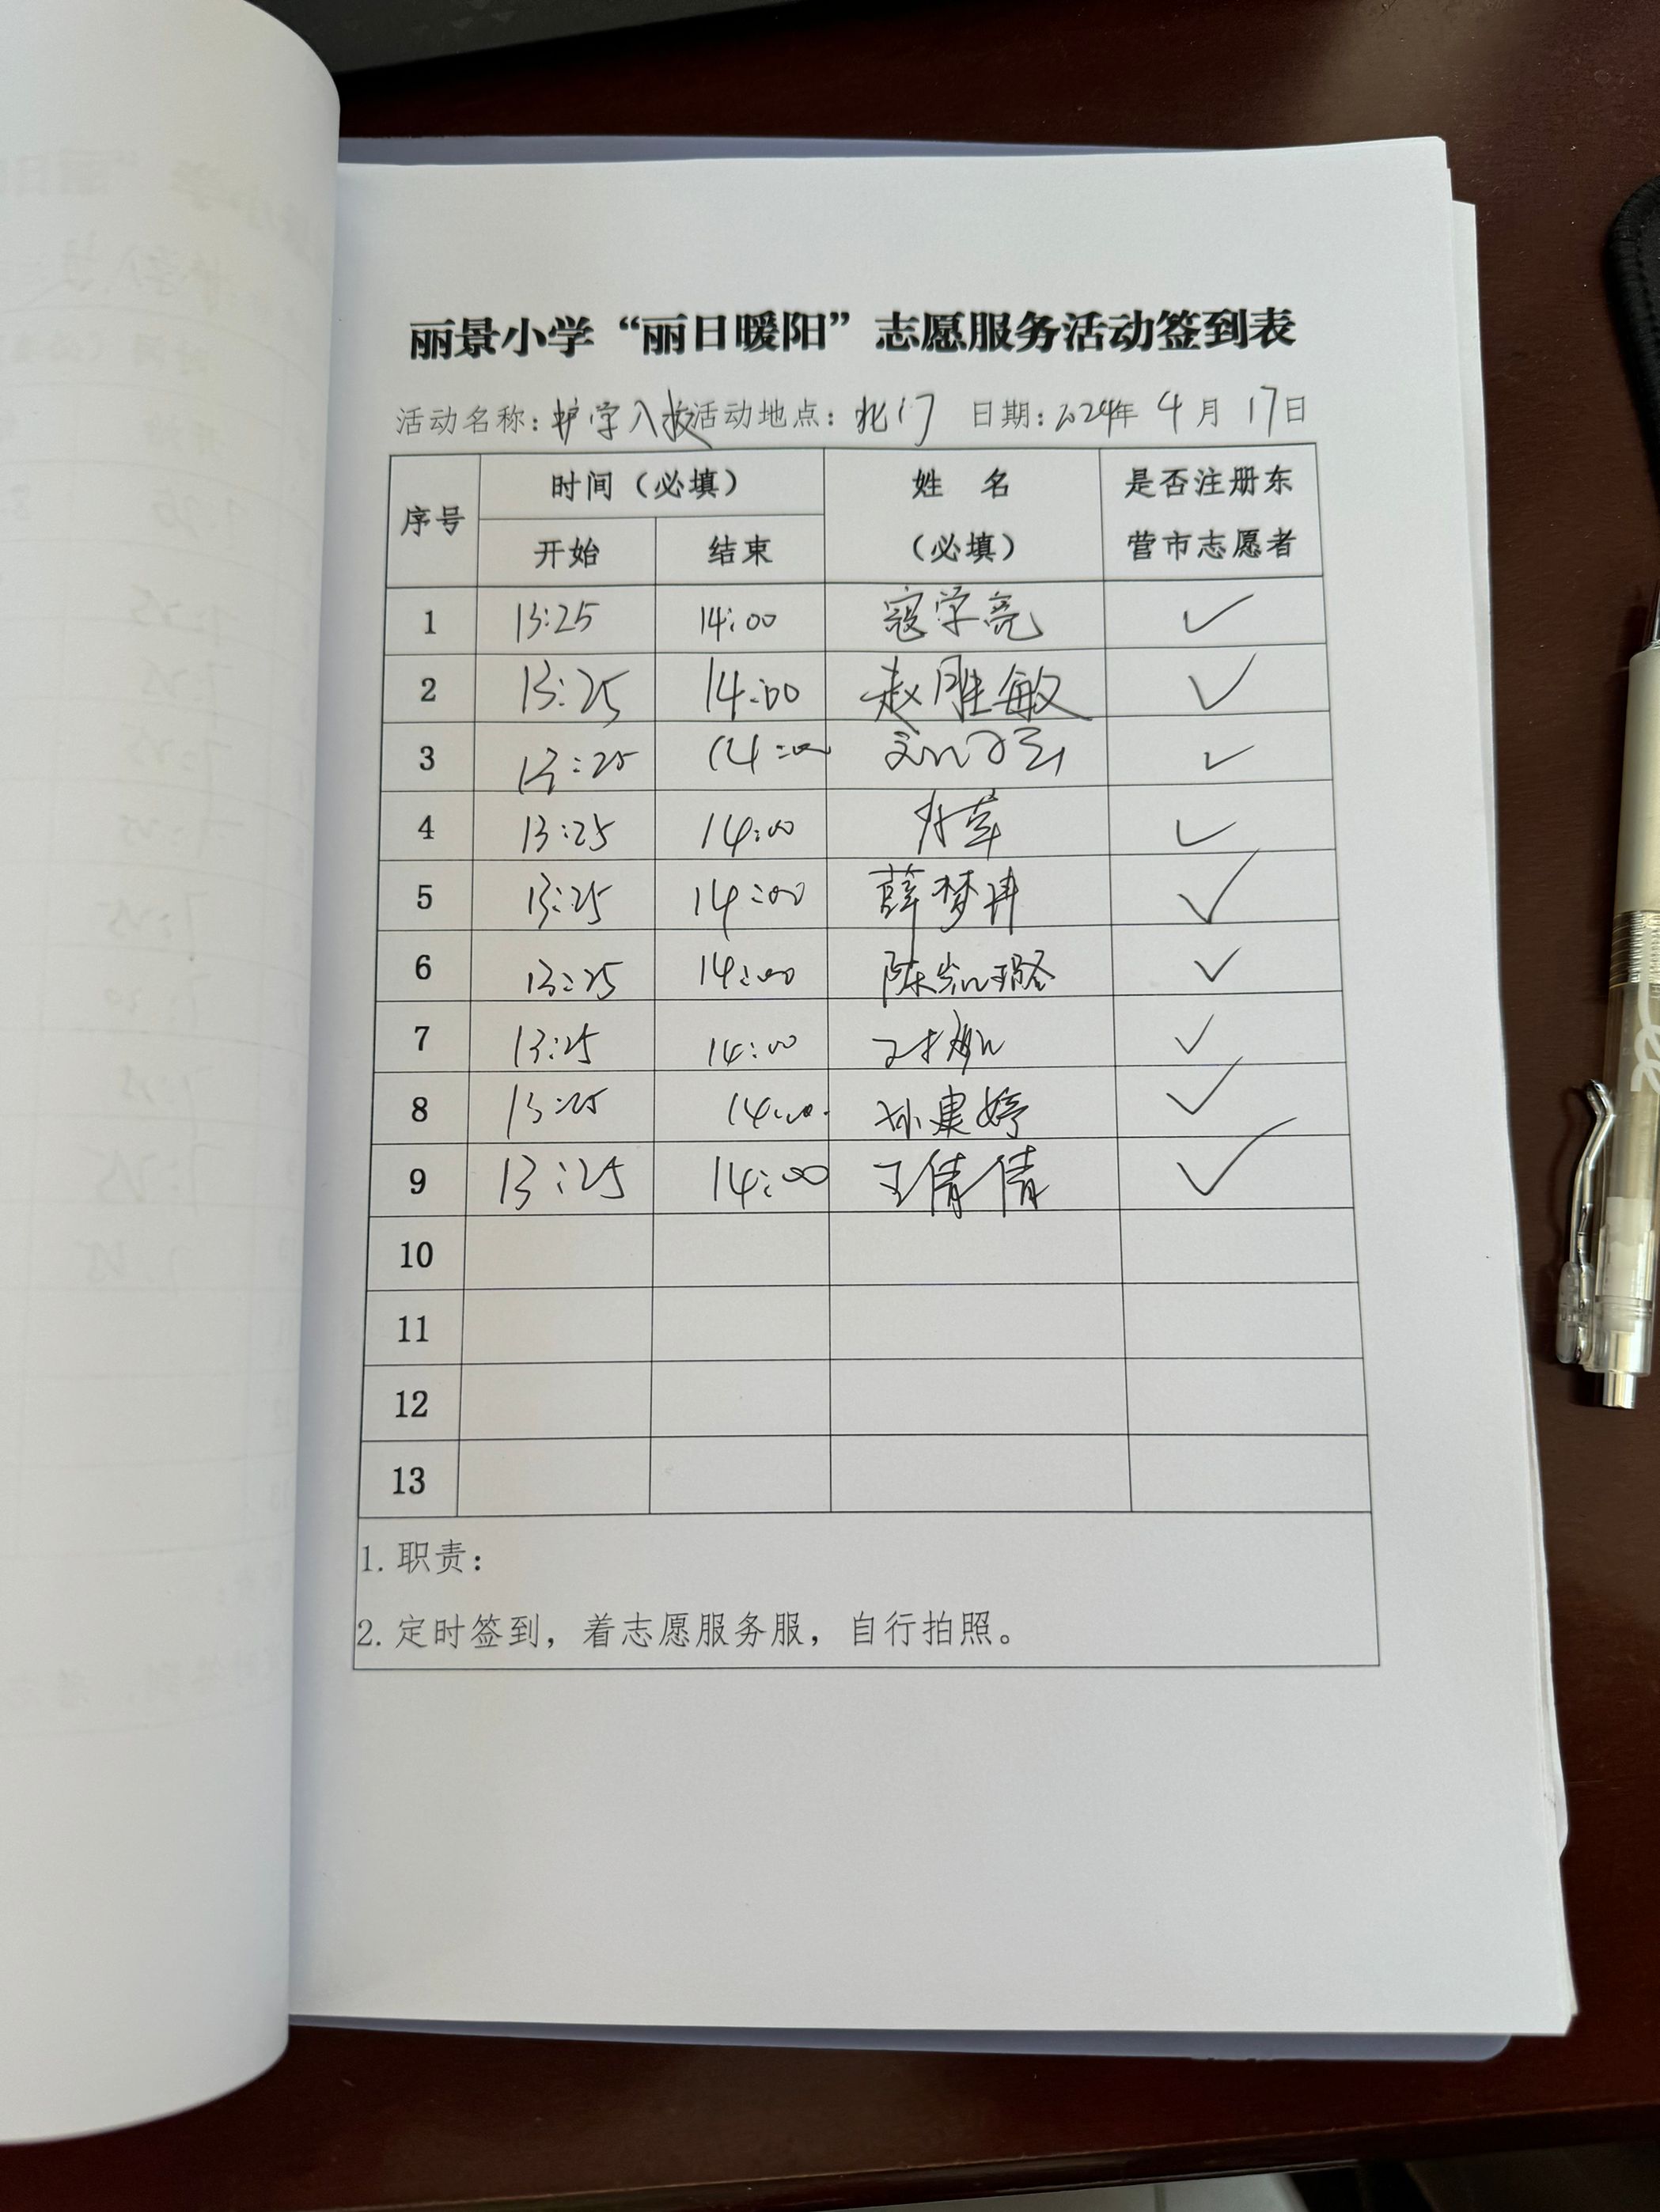 丽景小学“丽日暖阳”志愿服务活动签到表
活动名称：护学入校 活动地点：北门 日期：2024年 4 月 17日
序号 时间（必填） 姓 名（必填） 是否注册东营市志愿者
开始 结束
1 13:25 14:00 寇学亮 ✓
2 13:25 14:00 赵胜敏 ✓
3 13:25 14:00 ✓
4 13:25 14:00 ✓
5 13:25 14:00 薛梦冉 ✓
6 13:25 14:00 陈凯璐 ✓
7 13:25 14:00 ✓
8 13:25 14:00 孙建婷 ✓
9 13:25 14:00 王倩倩 ✓
10
11
12
13
1. 职责：
2. 定时签到，着志愿服务服，自行拍照。